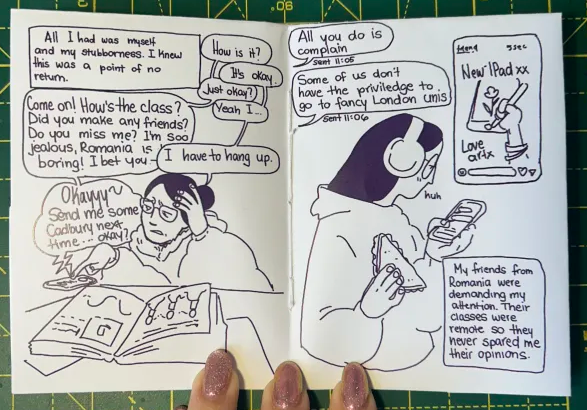 All I had was myself
and my stubborness. I knew
this was a point of no
return.
How is it?
It's okay.
Just okay?
Yeah I...
Come on! How's the class?
Did you make any friends?
Do you miss me? I'm soo
jealous, Romania is
boring! I bet you-
I have to hang up.
Okayyy~
Send me some
Cadbury next
time... okay?
All you do is
complain
sent 11:05
Some of us don't
have the priviledge to
go to fancy London unis
sent 11:06
huh
friend 5sec
New IPad xx
Love
artx
My friends from
Romania were
demanding my
attention. Their
classes were
remote so they
never spared me
their opinions.